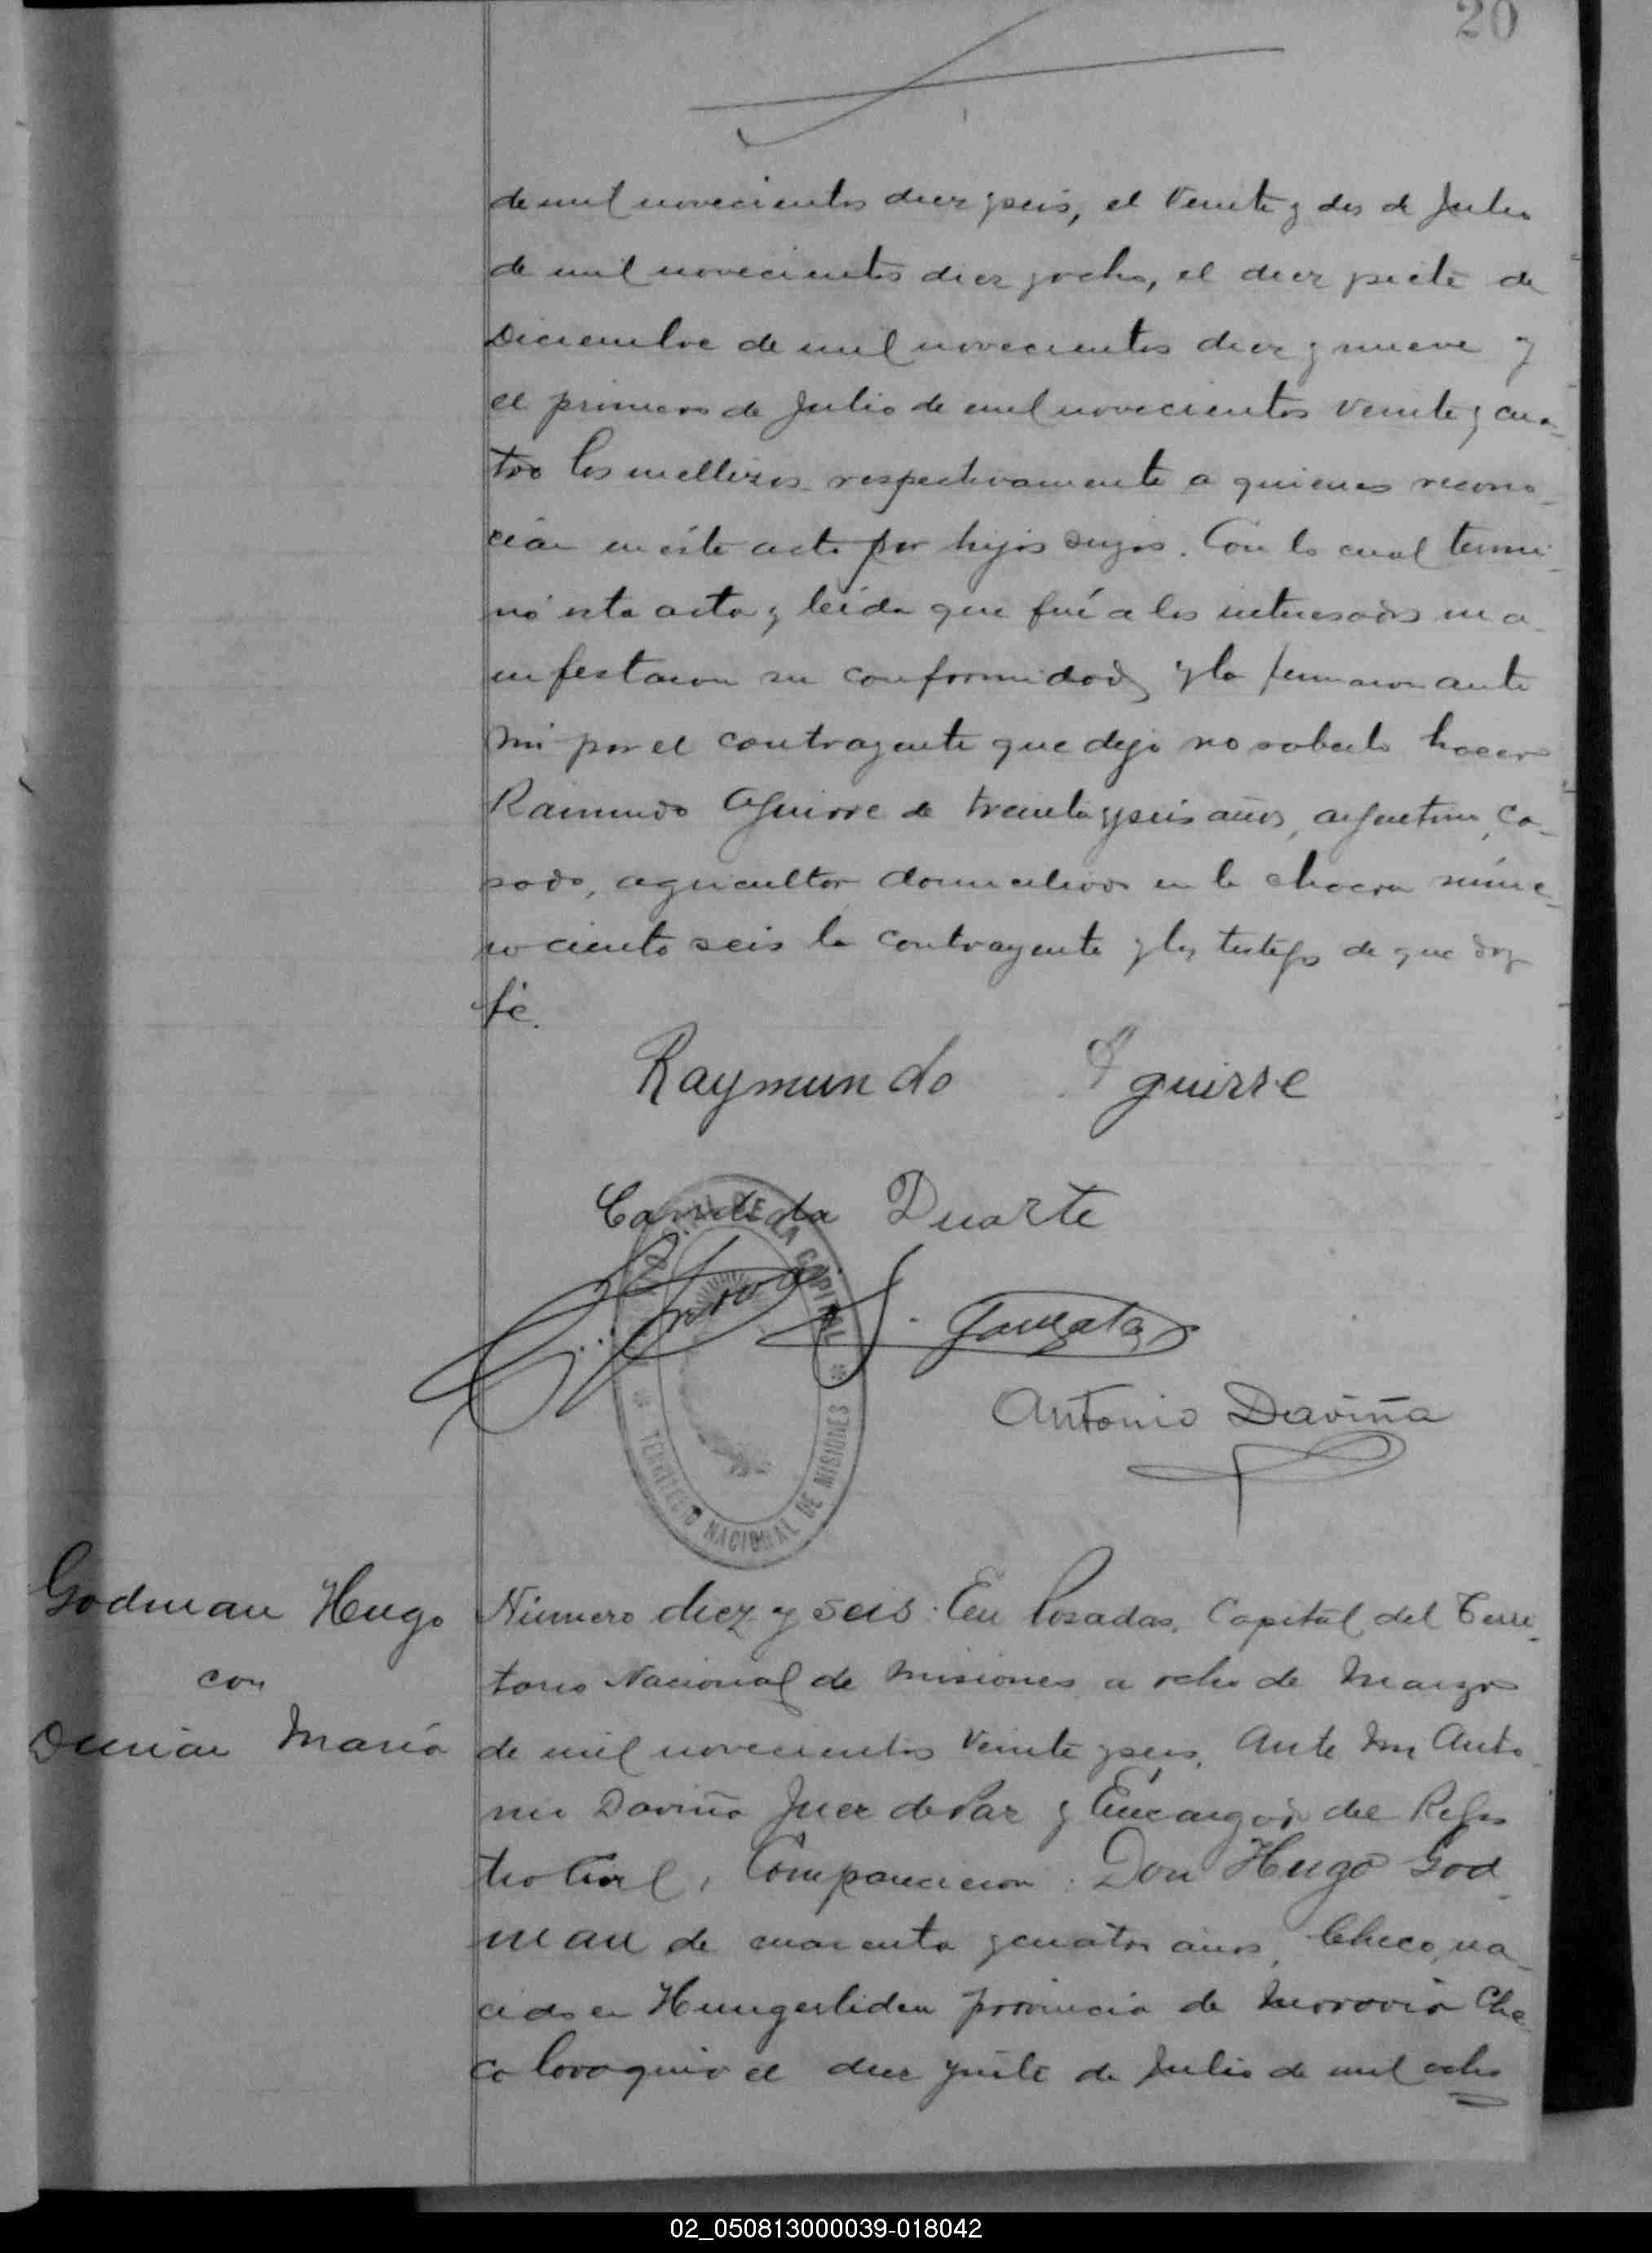 20
de mil novecientos diez y seis, el veinte y dos de Julio
de mil novecientos diez y ocho, el diez y siete de
Diciembre de mil novecientos diez y nueve y
el primero de Julio de mil novecientos veinte y cua-
tro los mellizos respectivamente a quienes recono-
cian en éste acto por hijos suyos. Con lo cual termi-
nó esta acta y leida que fué a los interesados ma-
nifestaron su conformidad y la firmaron ante
mi por el contrayente que dijo no saberlo hacer
Raimundo Aguirre de treinta y seis años, argentino, ca-
sado, agricultor domiciliado en la chacra núme-
ro ciento seis la contrayente y los testigos de que doy
fé.
Raymundo Aguirre
Candida Duarte
Antonio Daviña
DE LA CAPITAL
TERRITORIO NACIONAL DE MISIONES
Godman Hugo
con
María
Número diez y seis: En Posadas, Capital del Terri-
torio Nacional de Misiones a ocho de Marzo
de mil novecientos veinte y seis, Ante mi Anto-
nio Daviña Juez de Paz y Encargado del Regis
tro Civil, Comparecieron: Don Hugo God-
man de cuarenta y cuatro años, Checo, na-
cido en provincia de Morovia Che-
co lovaquia el diez y siete de Julio de mil ocho
02_050813000039-018042